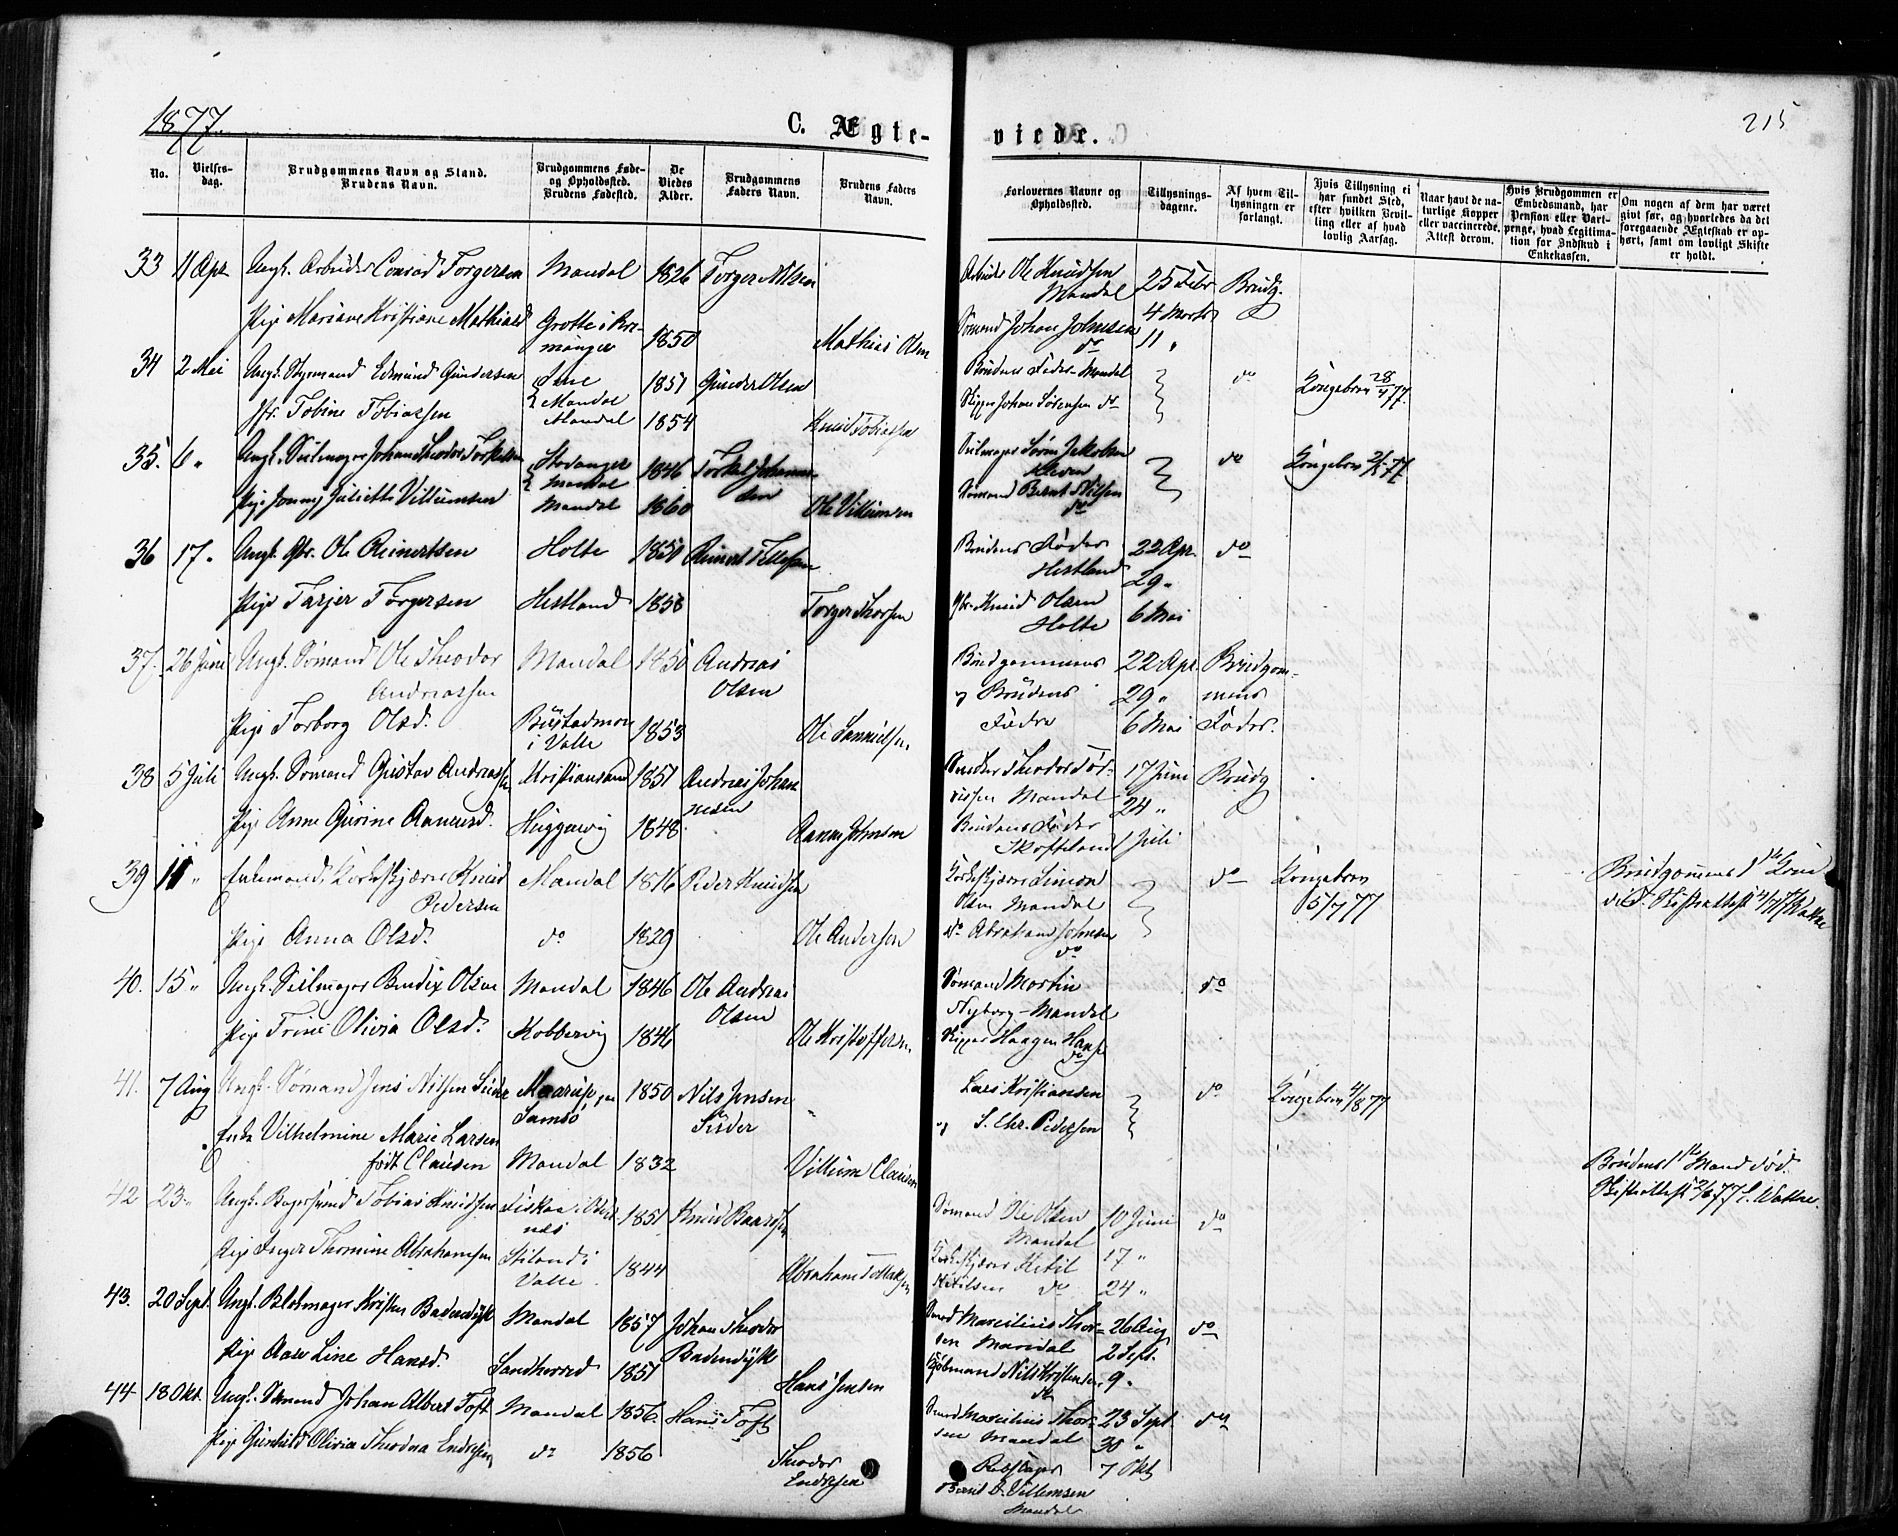 1877.
C. Ægte-
viede.
215
No.
Vielses-
dag.
Brudgommens Navn og Stand.
Brudens Navn.
Brudgommens Føde-
og Opholdssted.
Brudens Fødested.
De
Viedes
Alder.
Brudgommens
Faders Navn.
Brudens Faders
Navn.
Forlovernes Navne og
Opholdssted.
Tillysnings-
dagene.
Af hvem Til-
lysningen er
forlangt.
Hvis Tillysning ei
har fundet Sted,
efter hvilken Bevil-
ling eller af hvad
lovlig Aarsag.
Naar havt de na-
turlige Kopper
eller vaccinerede.
Attest derom.
Hvis Brudgommen er
Embedsmand, har
Pension eller Vart-
penge, hvad Legitima-
tion for Indskud i
Enkekassen.
Om nogen af dem har været
givt før, og hvorledes da det
foregaaende Ægteskab er op-
hørt, samt om lovligt Skifte
er holdt.
33 11 Apr. Ungk. Arbeider Conrad Torgersen Mandal 1826 Torger Nilsen Arbeider Ole Knudsen 25 Febr Brudg.
Mandal
Pige Mariane Kristiane Mathiasd Grotte i 1850 Mathias Olsen Sømand Johan Johnsen 4 Marts
do 11 "
34 2 Mai Ungk. Styrmand Edmund Gundersen 1851 Gunder Olsen Brudens Fader Mandal do Kongebrev 28/4 77.
Mandal
Jfr. Tobine Tobiassen Mandal 1854 Knud Tobiassen Skipper Johan Sørensen do
35. 6 " Ungk. Seilmager Johan Theodor Torkelsen Stavanger 1846 Torkel Johannesen Seilmager Søren Jakobsen do Kongebrev 77
Mandal Kleven
Pige Jenny Juliette Villumsen Mandal 1860 Ole Villumsen Sømand Bernt Nilsen
do
36 17. Ungk. Gbr. Ole Reinertsen Holte 1850 Reinert Tellefsen Brudens Fader 22 Apr. do
Hestland 29 "
Pige Tarjer Torgersen Hestland 1858 Torger Thorsen Gbr. Knud Olsen 6 Mai
Holte
37. 26 Juni Ungk. Sømand Ole Theodor Mandal 1850 Andreas Brudgommens 22 Apr. Brudgom-
Andreassen Olsen og Brudens 29 " mens
Pige Torborg Olsd. Bustadmoen 1853 Ole Samuelsen Fædre 6 Mai Fader.
i Valle
38 5 Juli Ungk. Sømand Gustav Andreassen Kristianssand 1851 Andreas Johan- Snedker Theodor 17 Juni Brudg
nesen Mandal 24 "
Pige Anne Gurine Aanensd. Huggenvig 1848. Aanen Johnsen Brudens Fader 1 Juli
Skofteland
39 11 " Enkemand Pedersen Mandal 1816 Peder Knudsen Simon do Kongebrev Brudgommens 1ste Kone
Olsen Mandal 5/7 77 død. Skifteattest
Pige Anna Olsd. do 1829 Ole Andersen do Abraham Johnsen
do
40. 15 " Ungk. Seilmager Bendix Olsen Mandal 1846 Ole Andreas Sømand Martin do
Olsen Nyborg - Mandal
Pige Trine Olivia Olsd. Kobbervig 1846 Ole Kristoffersen Skipper Haagen
do
41. 7 Aug Ungk. Sømand Jens Nilsen Maarup, paa 1850 Nils Jensen Lars Kristiansen do Kongebrev 4/8 77
Samsø
Enke Vilhelmine Marie Larsen og S. Chr. Pedersen
født Clausen Mandal 1832 Villum Clausen Brudens 1ste Mand død.
Skifteattest
42 23 " Ungk. Tobias Knudsen 1851 Knud Sømand Ole Olsen 10 Juni do
Mandal
Pige Inger Thomine Abrahamsen Stiland i 1844 Abraham Ketil 17 "
Valle Ketilsen do 24 "
43. 20 Sept. Ungk. Blokmager Kristen Badendyk Mandal 1857 Johan Theodor Marcilius Thor- 26 Aug. do
Badendyk sen Mandal 2 Sept.
Pige Aase Line Hansd. Sandherred 1851 Hans Jensen Kjøbmand Nils Kristensen 9 "
do
44 18 Okt. Ungk. Sømand Johan Albert Toft Mandal 1856 Hans Toft Marcilius Thor- 23 Sept do
sen Mandal 30 "
Pige Gunhild Olivia Theodora Endresen do 1856 Theodor Rebslager 7 Okt
Endresen Bernt D. Villumsen
Mandal